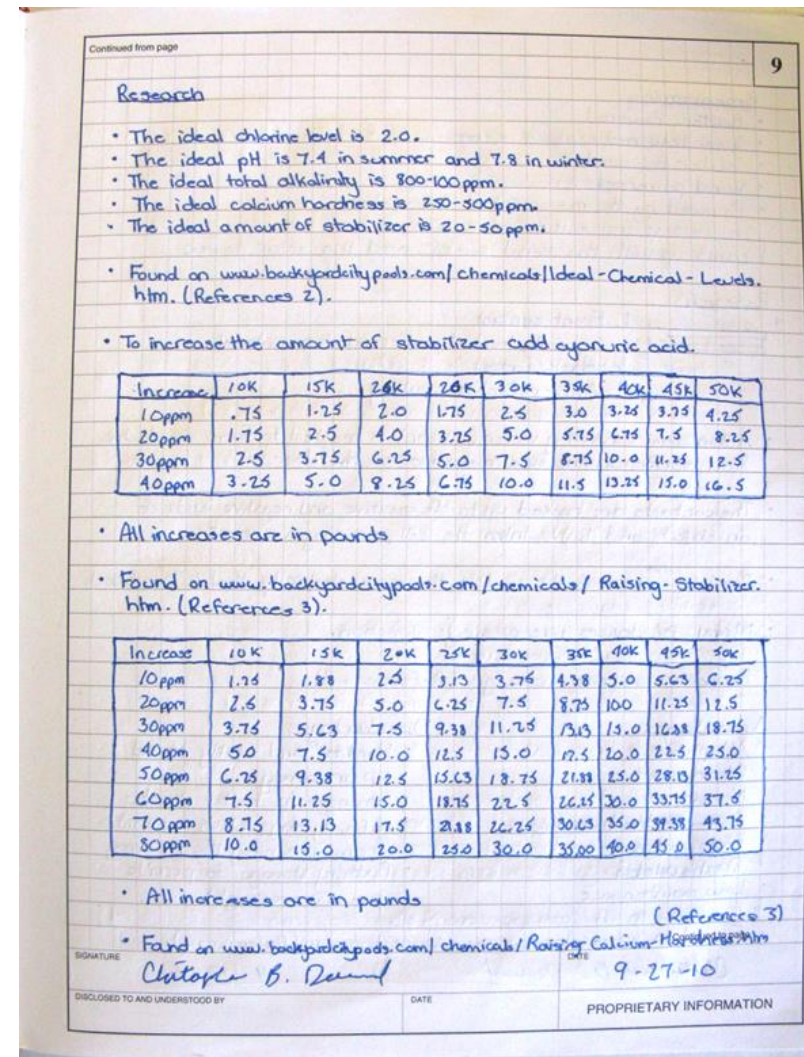 Continued from page
9
Research
• The ideal chlorine level is 2.0.
• The ideal pH is 7.4 in summer and 7.8 in winter.
• The ideal total alkalinity is 800-100ppm.
• The ideal calcium hardness is 250-500ppm.
• The ideal amount of stabilizer is 20-50ppm.
• Found on www.backyardcitypools.com/chemicals/Ideal-Chemical-Levels.
htm. (References 2).
• To increase the amount of stabilizer add cyanuric acid.
Increase 10K 15K 20K 30K 35K 40K 45K 50K
10ppm .75 1.25 2.0 1.75 2.5 3.0 3.25 3.75 4.25
20ppm 1.75 2.5 4.0 3.25 5.0 5.75 6.75 7.5 8.25
30ppm 2.5 3.75 6.25 5.0 7.5 8.75 10.0 11.25 12.5
40ppm 3.25 5.0 8.25 6.75 10.0 11.5 13.25 15.0 16.5
• All increases are in pounds
• Found on www.backyardcitypools.com/chemicals/Raising-Stabilizer.
htm. (References 3).
Increase 10K 15K 20K 25K 30K 35K 40K 45K 50K
10ppm 1.25 1.88 2.5 3.13 3.75 4.38 5.0 5.63 6.25
20ppm 2.5 3.75 5.0 6.25 7.5 8.75 100 11.25 12.5
30ppm 3.75 5.63 7.5 9.38 11.25 13.13 15.0 16.88 18.75
40ppm 5.0 7.5 10.0 12.5 15.0 17.5 20.0 22.5 25.0
50ppm 6.25 9.38 12.5 15.63 18.75 21.88 25.0 28.13 31.25
60ppm 7.5 11.25 15.0 18.75 22.5 26.25 30.0 33.75 37.5
70ppm 8.75 13.13 17.5 21.88 26.25 30.63 35.0 39.38 43.75
80ppm 10.0 15.0 20.0 25.0 30.0 35.00 40.0 45.0 50.0
• All increases are in pounds
(References 3)
• Found on www.backyardcitypools.com/chemicals/Raising-Calcium-Hardness.htm
Continued to page
SIGNATURE DATE
B. 9-27-10
DISCLOSED TO AND UNDERSTOOD BY DATE PROPRIETARY INFORMATION